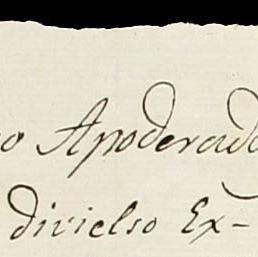 o Apoderado
divielso Ex-